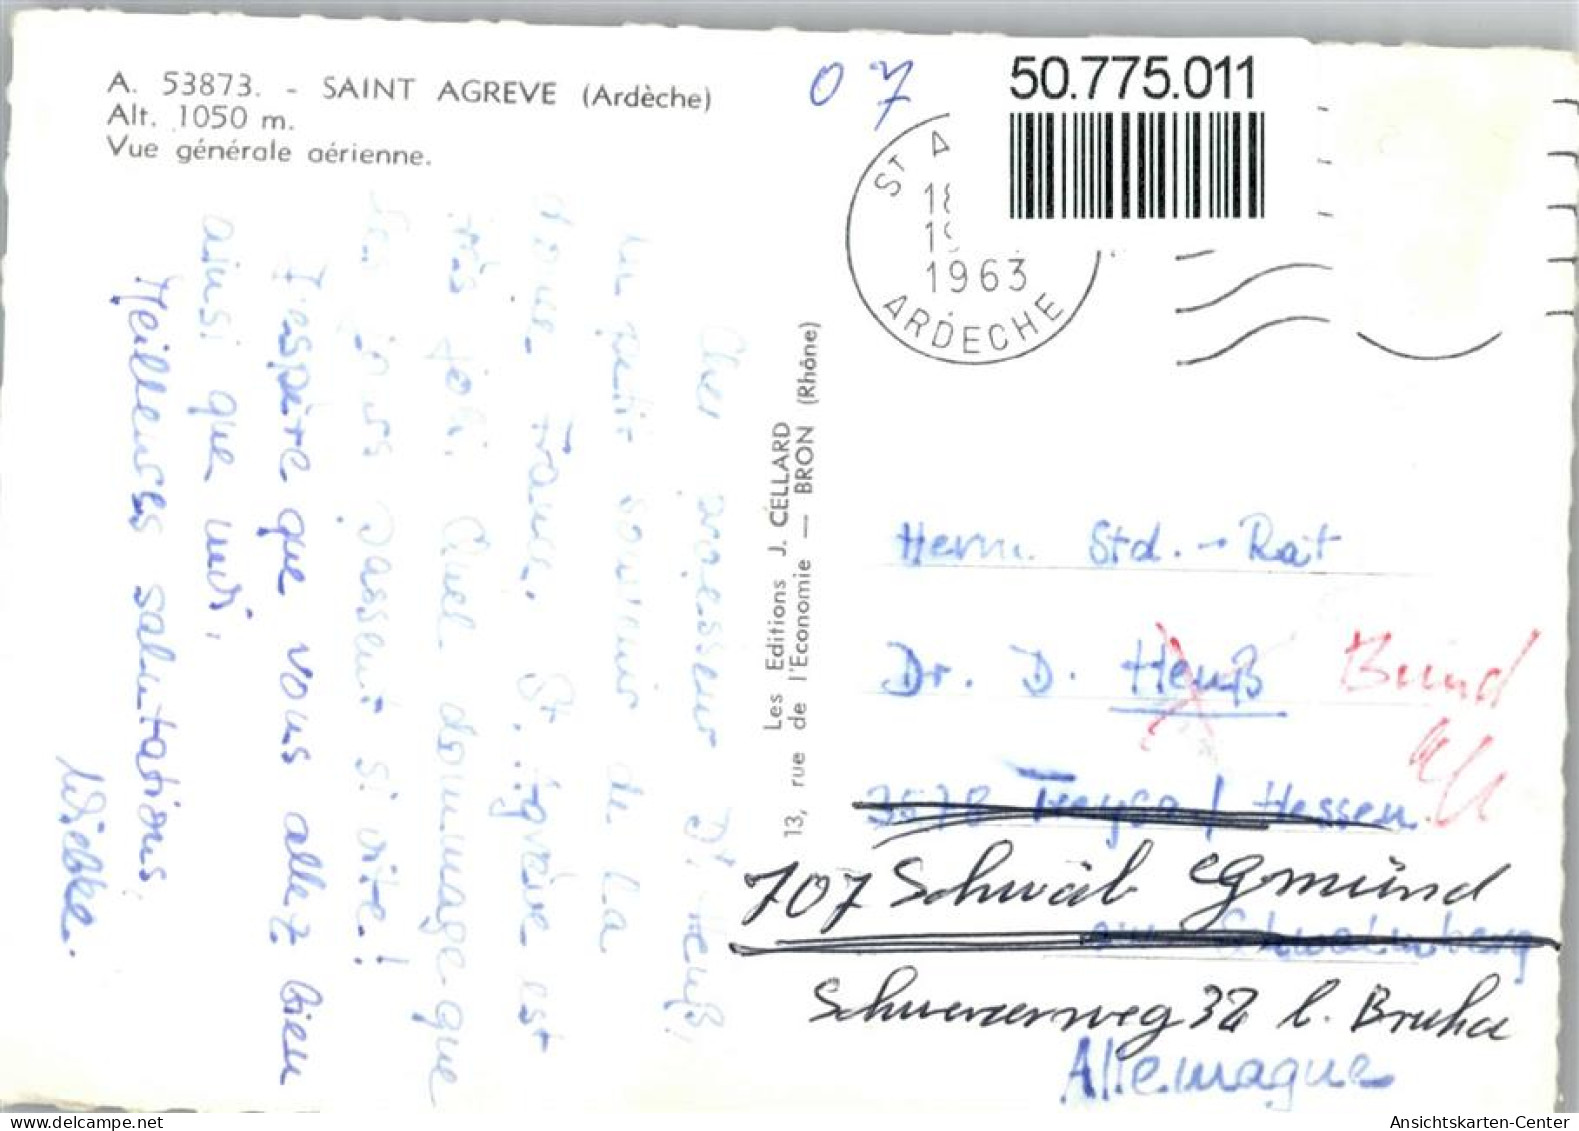 A. 53873. - SAINT AGREVE (Ardèche)
Alt. 1050 m.
Vue générale aérienne.
Cher professeur Dr. Heuß,
un petit souvenir de la
douce France. St. Agrève est
très joli. Quel dommage que
les jours passent si vite!
J'espère que vous allez bien
ainsi que moi.
Meilleures salutations,
Wiebke.
Les Editions J. CELLARD
13, rue de l'Economie — BRON (Rhône)
07
50.775.011
ST A
18
19
1963
ARDECHE
Herrn Std.-Rat
Dr. D. Heuß
3578 Treysa / Hessen
707 Schwäb Gmünd
Schwerzerweg 32 b.
Allemagne
Ansichtskarten-Center